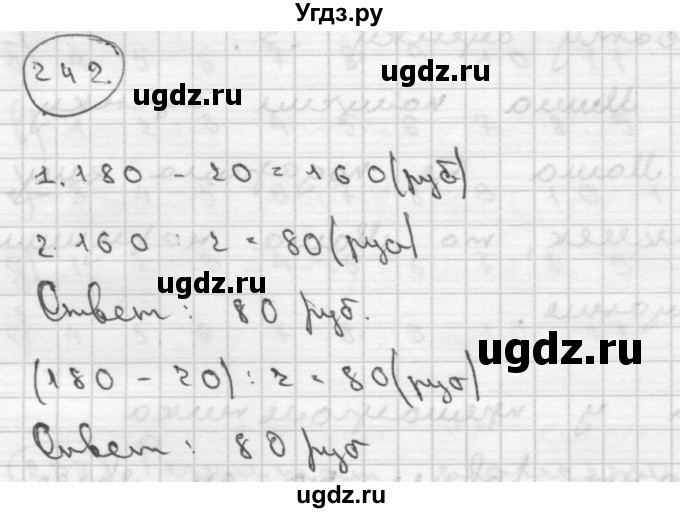 Угдз.ру
242.
ugdz.ru ugdz.ru
1. 180 - 20 = 160 (руб)
2. 160 : 2 = 80 (руб)
ugdz.ru
Ответ: 80 руб.
ugdz.ru
(180 - 20) : 2 = 80 (руб)
Ответ: 80 руб
ugdz.ru
ugdz.ru